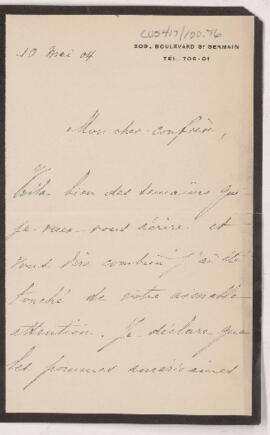 COS417/100.76
203, BOULEVARD ST GERMAIN
TÉL. 706-01
10 mai 04
Mon cher confrère,
Voilà bien des semaines que
je veux vous écrire et
vous dire combien j'ai été
touché de votre aimable
attention. Je déclare que
les pommes américaines